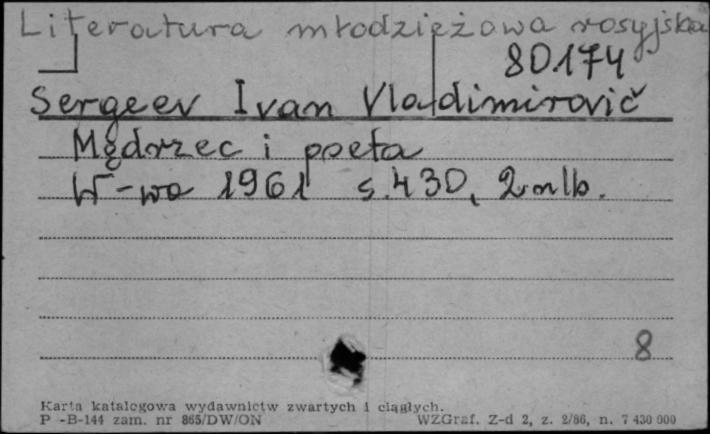 Literatura młodzieżowa rosyjska
80174
Sergeev Ivan Vladimirovič
Mędrzec i poeta
W-wa 1961 s. 430, 2 nlb.
8
Karta katalogowa wydawnictw zwartych i ciągłych.
P -B-144 zam. nr 865/DW/ON WZGraf. Z-d 2, z. 2/86, n. 7 430 000